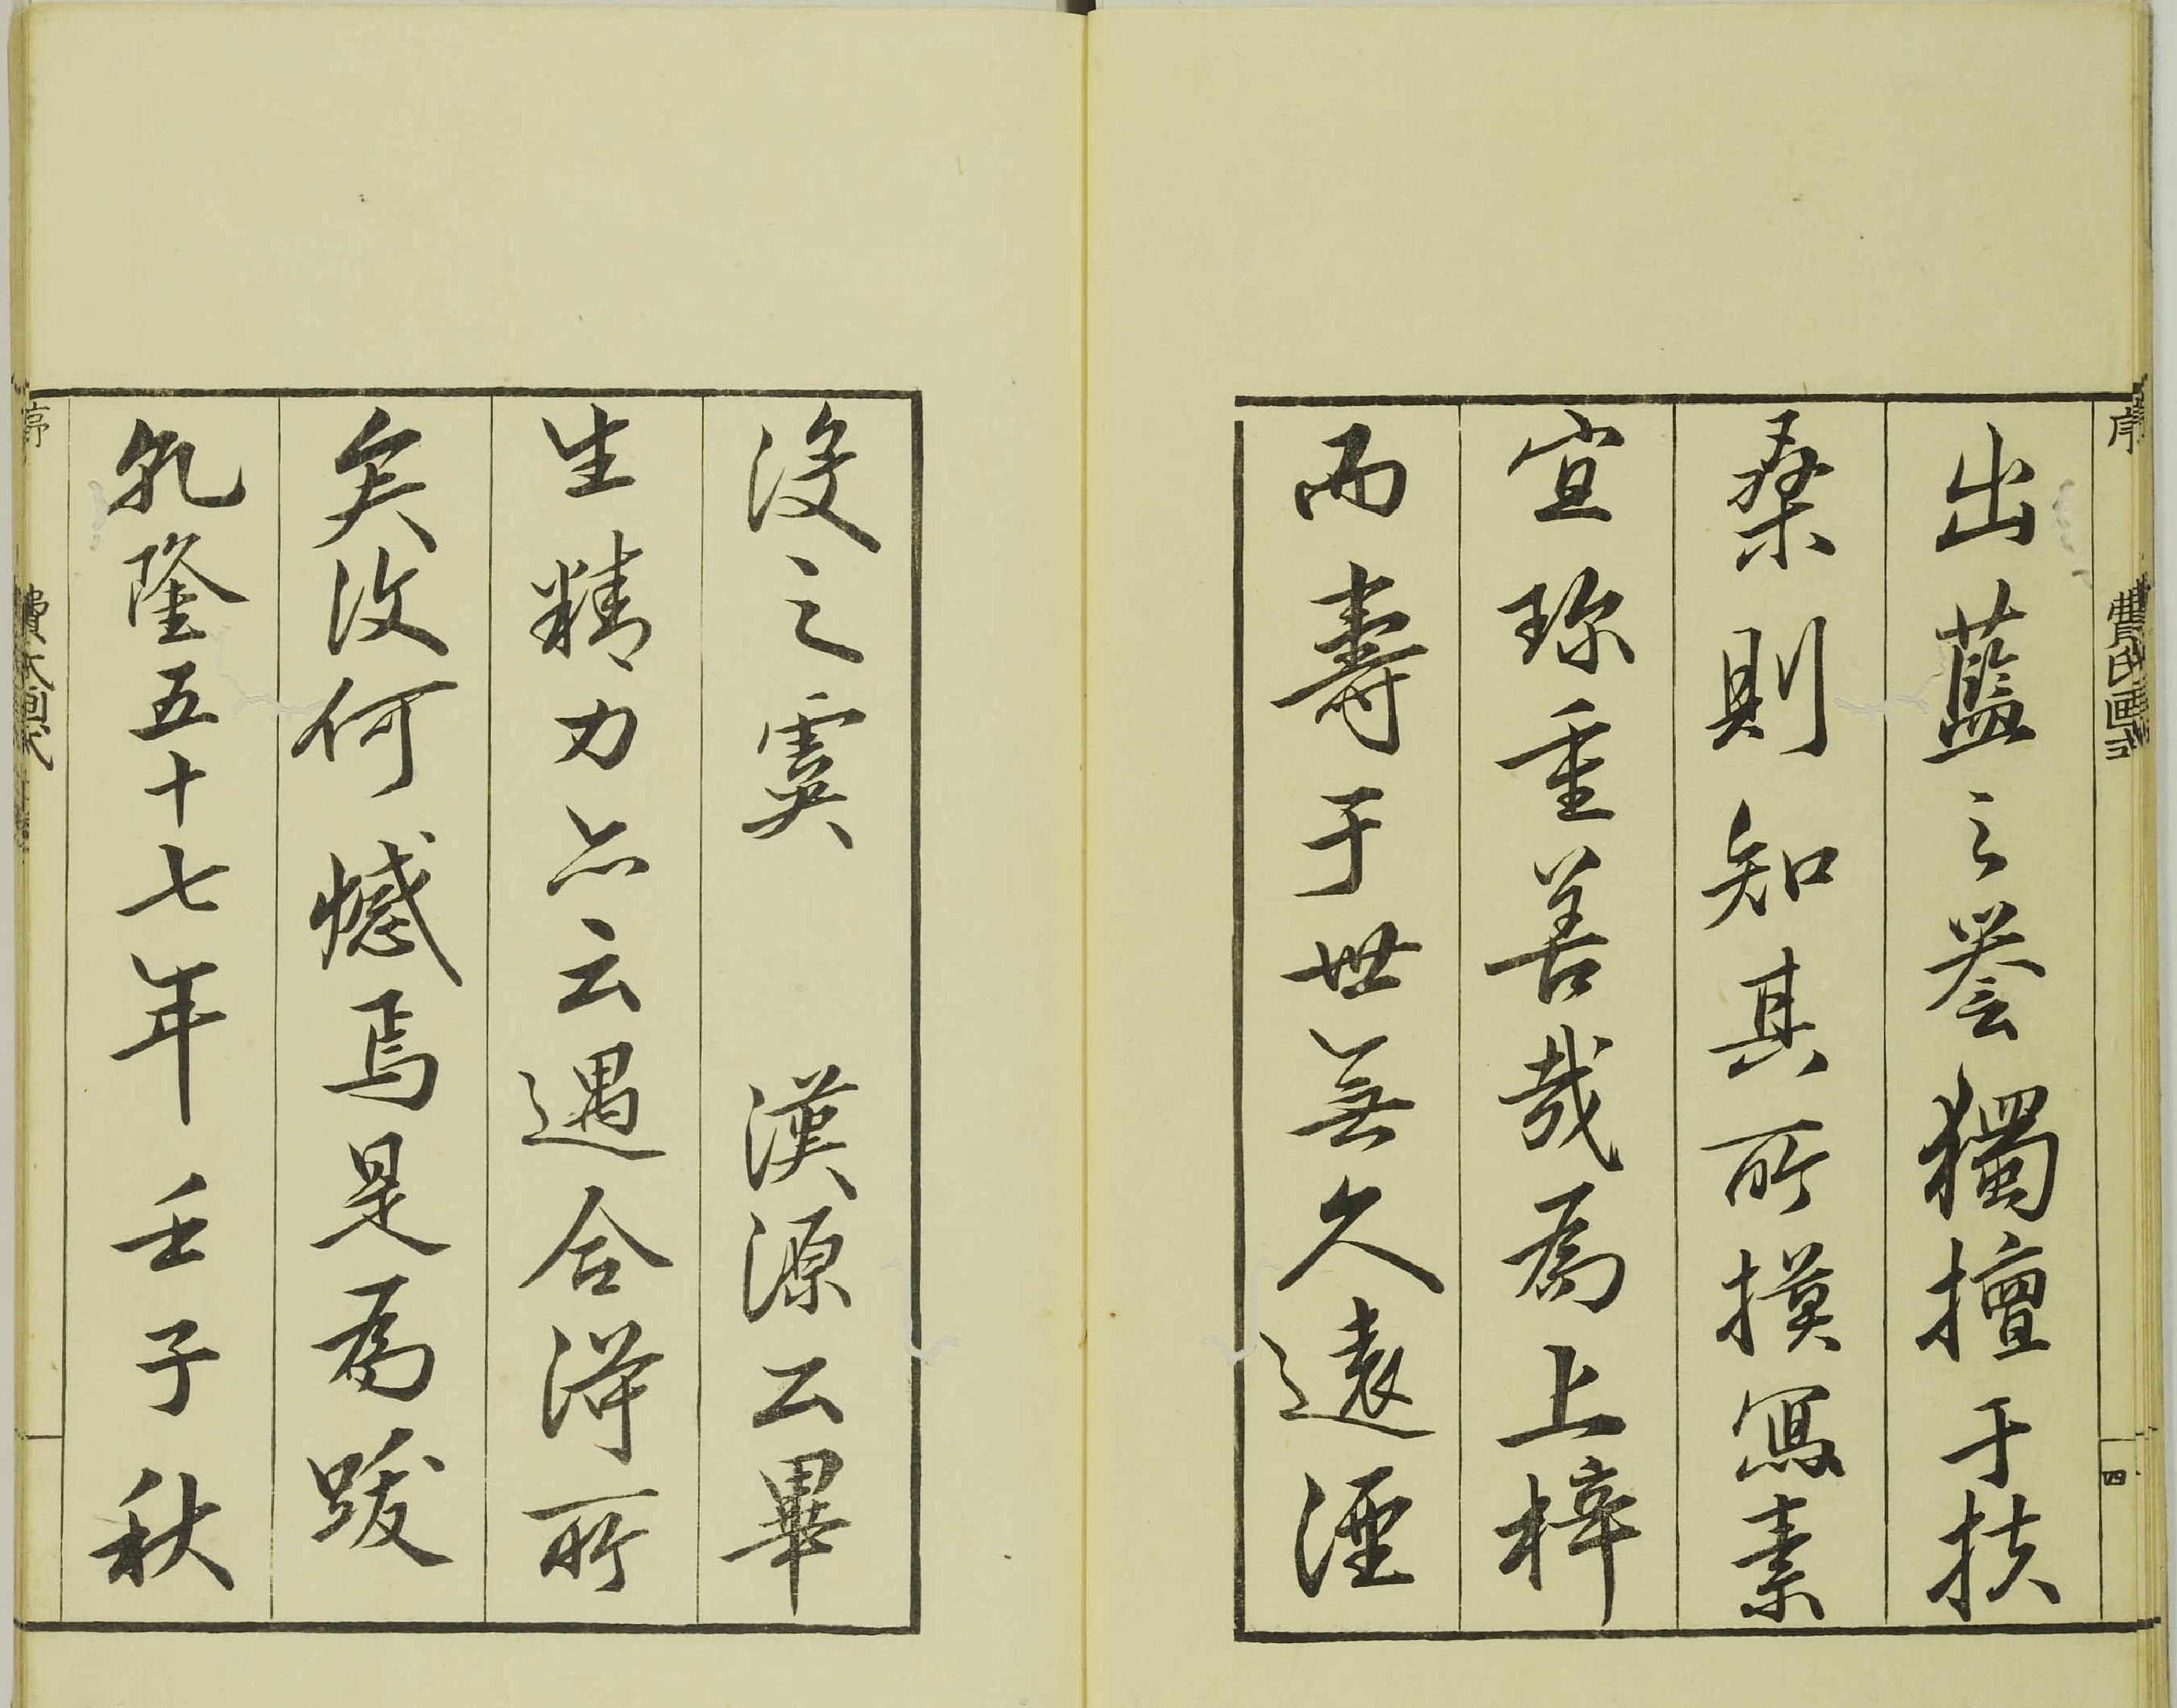 序 費氏画式 四
出藍之譽獨擅于扶
桑則知其所摸寫素
宜珎重善哉為上梓
而壽于世無久遠湮
没之虞 漢源公畢
生精力亦云遇合得所
矣汝何憾焉是為跋
乹隆五十七年壬子秋